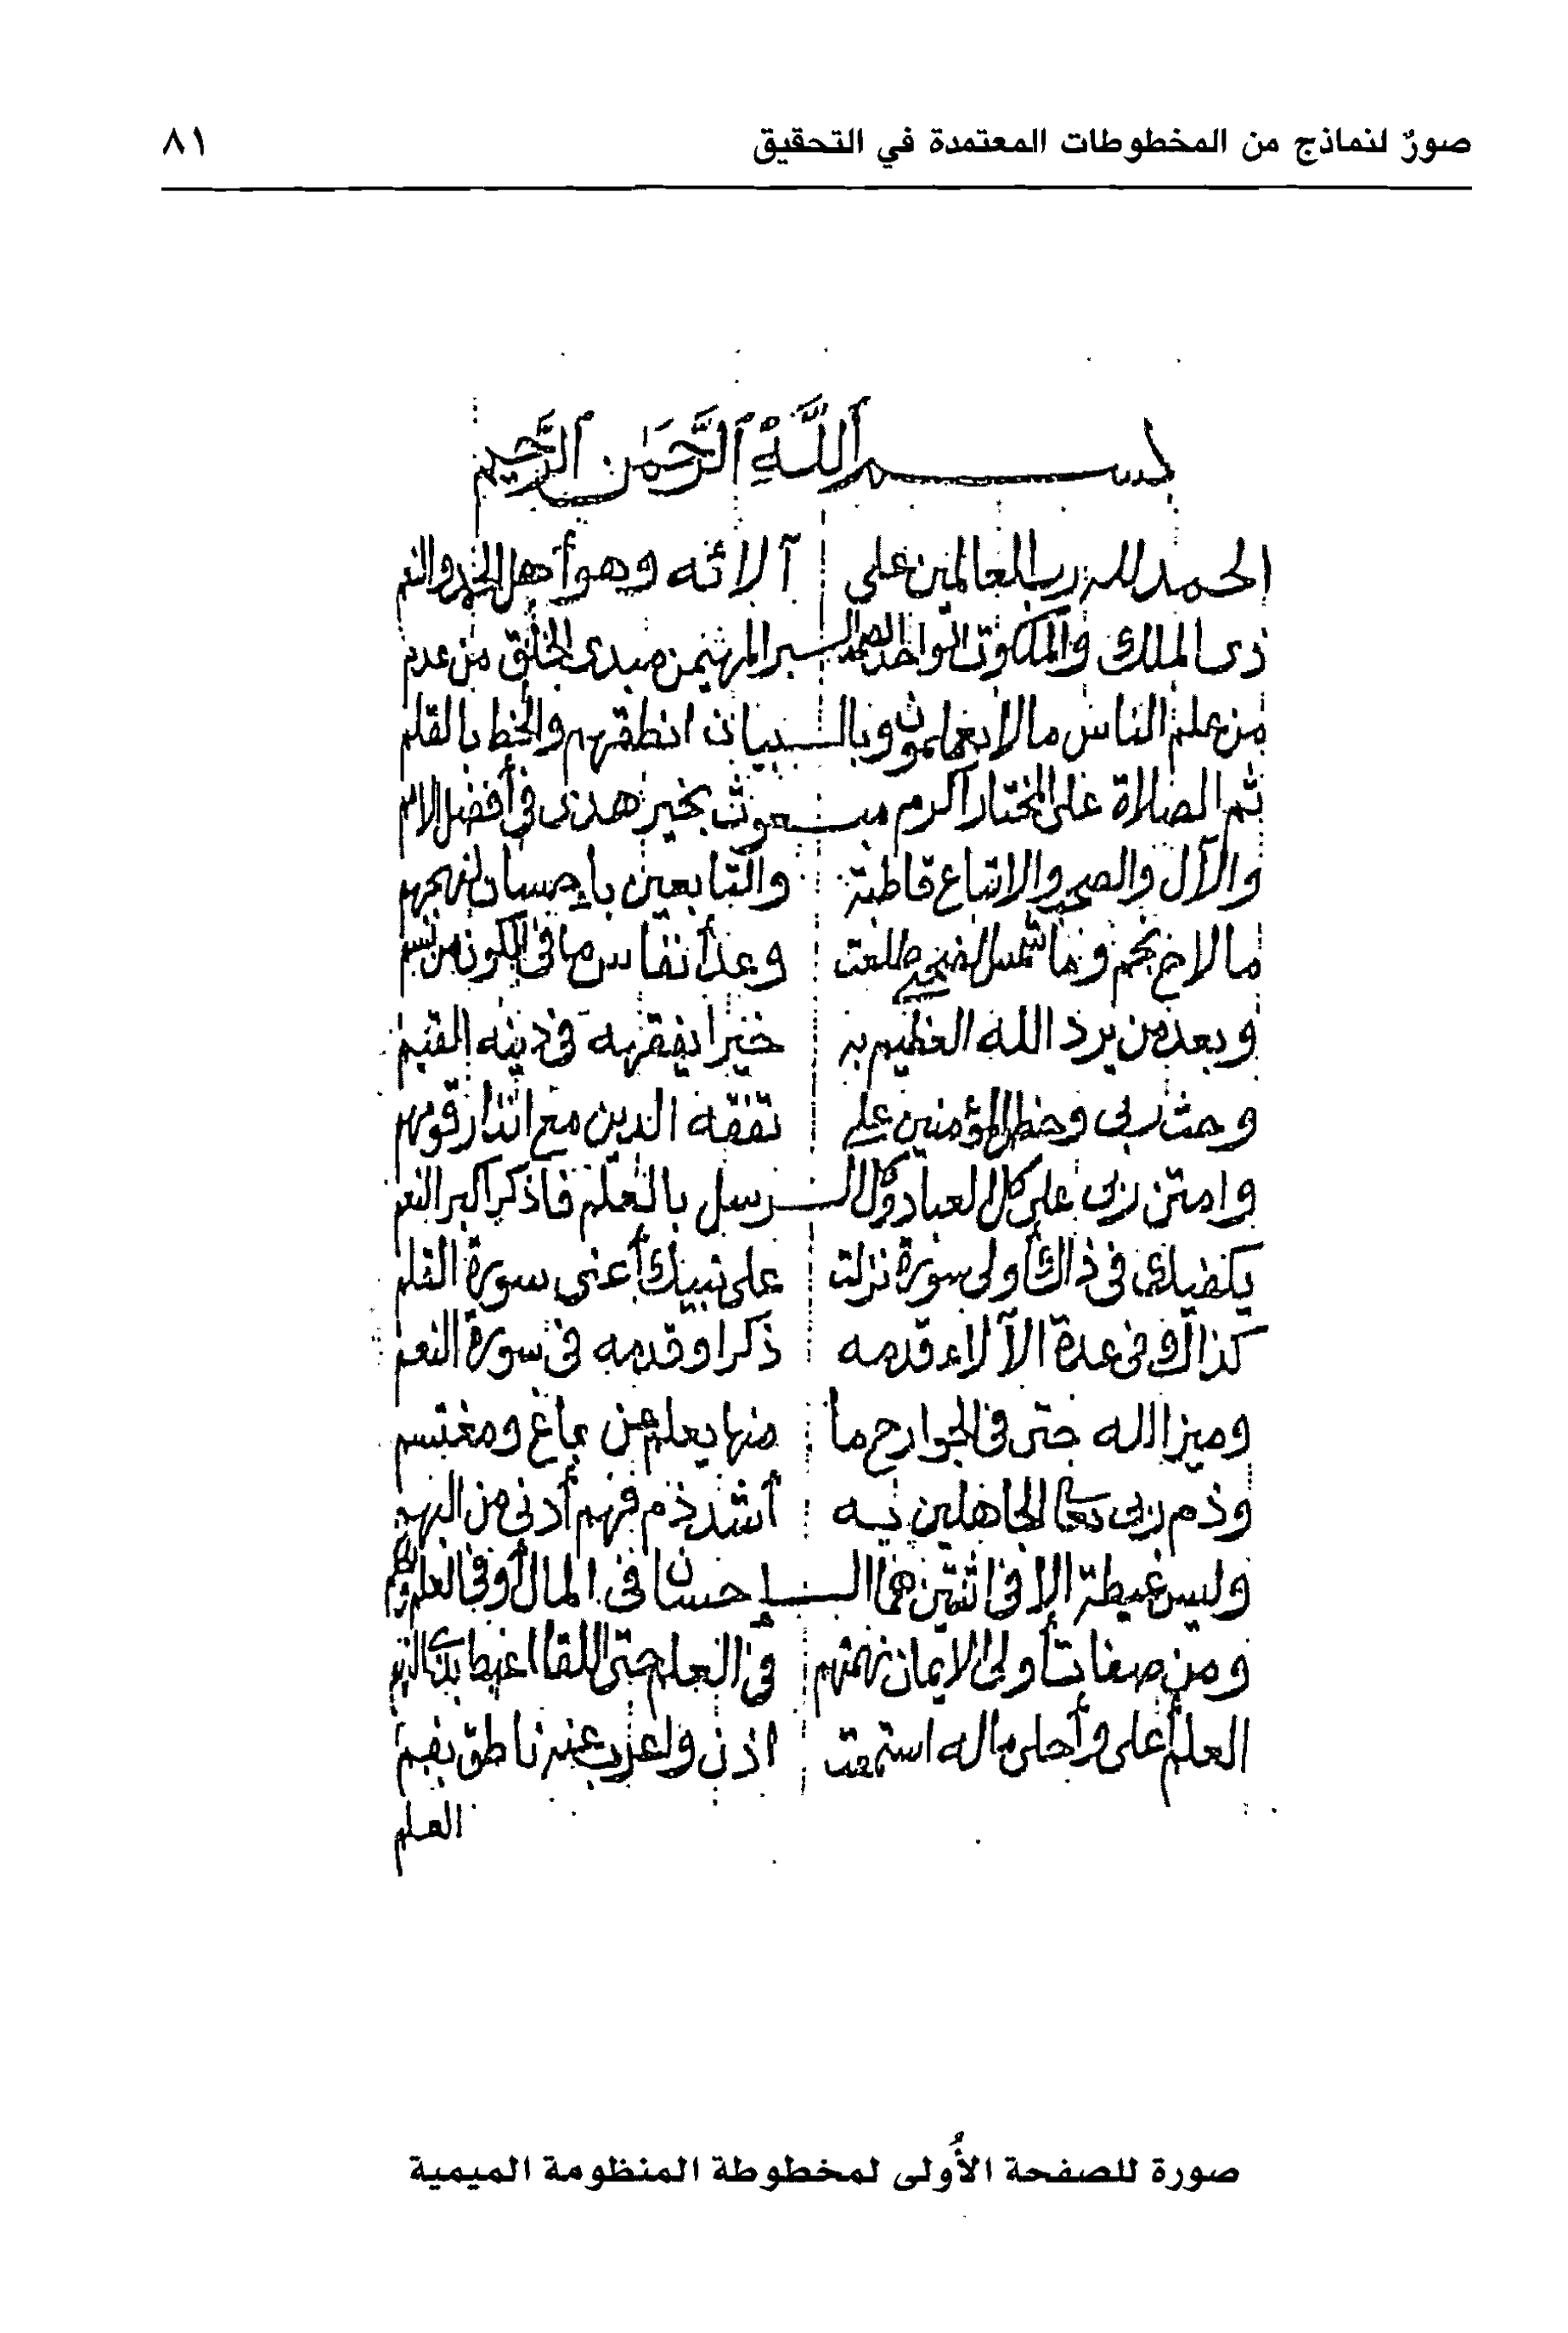 صورٌ لنماذج من المخطوطات المعتمدة في التحقيق ٨١
بسم اللَّهِ الرَّحمٰن الرَّحيم
الحمد لله رب العالمين على آلائه وهو أهل الحمد والنعم
ذى الملك والملكوت الواحد الصمد البر المهيمن مبدى الخلق من عدم
من علم الناس ما لا يعلمون وبالبيان انطقهم والخط بالقلم
ثم الصلاة على المختار اكرم مبعوث بخير هدى فى أفضل الامم
والآل والصحب والاتباع قاطبة والتابعين بإحسان لنهجهم
ما لاح نجم وما شمس الضحى طلعت وعد أنفاس ما فى الكون من نسم
وبعد من يرد الله العظيم به خيرا يفقهه فى دينه القيم
وحث ربى وحض المؤمنين على تفقه الدين مع انذار قومهم
وامتن ربى على كل العباد وكل الرسل بالعلم فاذكر اكبر النعم
يكفيك فى ذاك أولى سورة نزلت على نبيك أعنى سورة القلم
كذاك فى عدة الآلاء قدمه ذكرا وقدمه فى سورة النعم
وميز الله حتى فى الجوارح ما منها يعلم عن باغ ومغتشم
وذم ربى تعالى الجاهلين به أشد ذم فهم أدنى من البهم
وليس غبطة الا فى اثنتين هما الإحسان فى المال أو فى العلم والحكم
ومن صفات أولى الايمان نهمتهم فى العلم حتى اللقا اغبط بذى النهم
العلم أعلى وأحلى ما له استمعت اذن واعرب عنه ناطق بفم
العلم
صورة للصفحة الأُولى لمخطوطة المنظومة الميمية